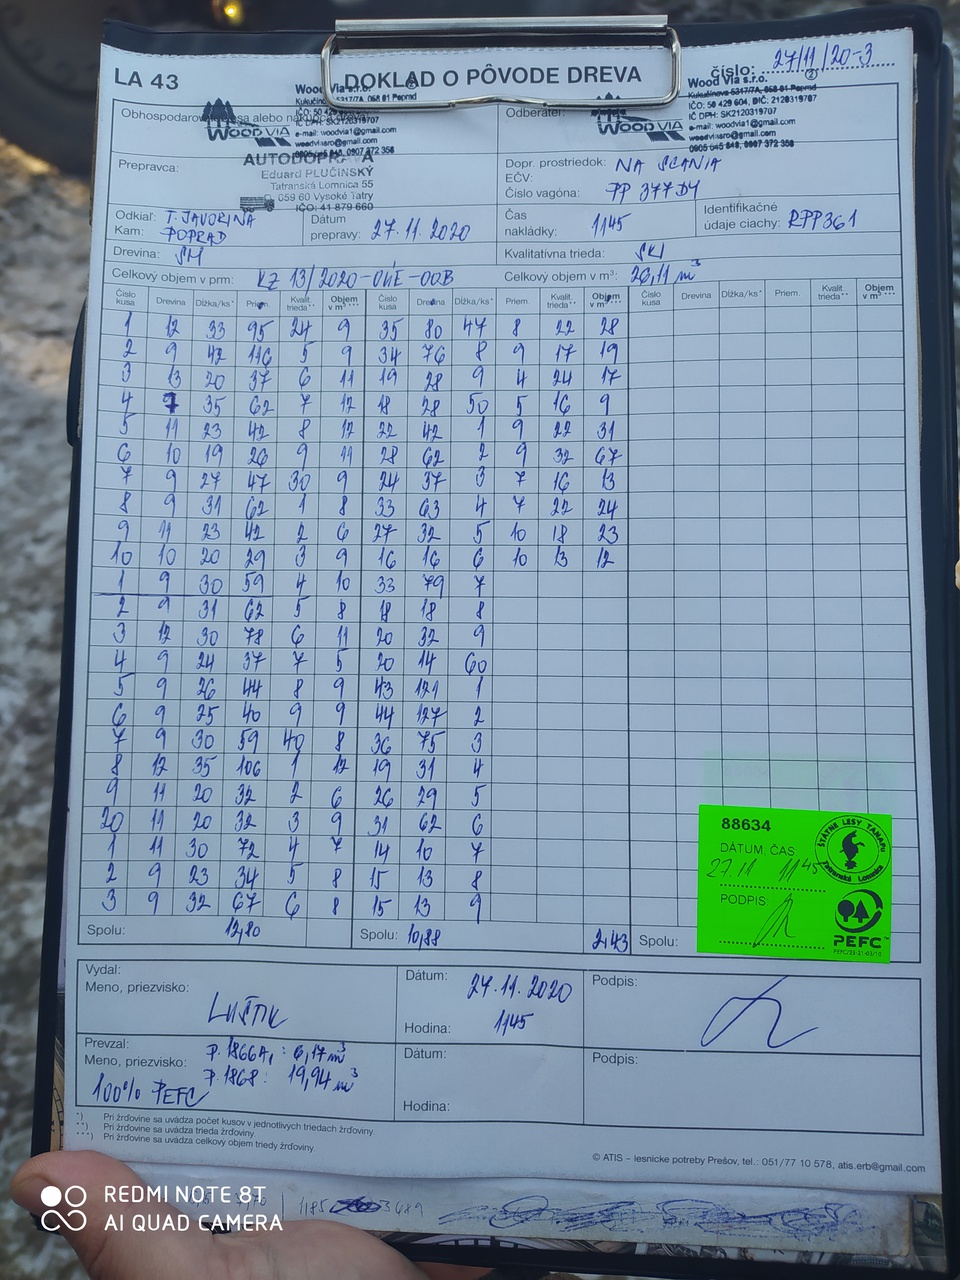 LA 43
DOKLAD O PÔVODE DREVA
číslo: 27/11/20-3
Obhospodarovateľ lesa alebo nákupca dreva:
WOOD VIA
Wood Via s.r.o.
Kukučínova 5317/7A, 058 01 Poprad
IČ DPH: SK2120319707
e-mail: woodvia1@gmail.com
woodviasro@gmail.com
0905 645 848, 0907 372 358
Odberateľ:
WOOD VIA
Wood Via s.r.o.
Kukučínova 5317/7A, 058 01 Poprad
IČO: 50 429 604, DIČ: 2120319707
IČ DPH: SK2120319707
e-mail: woodvia1@gmail.com
woodviasro@gmail.com
0905 645 848, 0907 372 358
Prepravca:
AUTODOPRAVA
Eduard PLUČINSKÝ
Tatranská Lomnica 55
059 60 Vysoké Tatry
IČO: 41 879 660
Dopr. prostriedok: NA SCANIA
EČV:
Číslo vagóna: PP 377DY
Odkiaľ: T. JAVORINA
Kam: POPRAD
Dátum prepravy: 27.11.2020
Čas nakládky: 1145
Identifikačné údaje ciachy: RPP361
Drevina: SM
Kvalitatívna trieda: SKI
Celkový objem v prm: KZ 13/2020-OVE-OOB
Celkový objem v m³: 26,11 m³
Číslo kusa Drevina Dĺžka/ks* Priem. Kvalit. trieda** Objem v m³*** Číslo kusa Drevina Dĺžka/ks* Priem. Kvalit. trieda** Objem v m³*** Číslo kusa Drevina Dĺžka/ks* Priem. Kvalit. trieda** Objem v m³***
1 12 33 95 24 9 35 80 47 8 22 28
2 9 42 116 5 9 34 76 8 9 17 19
3 13 20 37 6 11 19 28 9 4 24 17
4 9 35 62 7 12 18 28 50 5 16 9
5 11 23 42 8 12 22 42 1 9 22 31
6 10 19 26 9 11 28 62 2 9 32 67
7 9 27 47 30 9 24 37 3 7 16 13
8 9 31 62 1 8 33 63 4 7 22 24
9 11 23 42 2 6 27 32 5 10 18 23
10 10 20 29 3 9 16 16 6 10 13 12
1 9 30 59 4 10 33 79 7
2 9 31 62 5 8 18 18 8
3 12 30 78 6 11 20 32 9
4 9 24 37 7 5 20 14 60
5 9 26 44 8 9 43 121 1
6 9 25 40 9 9 44 127 2
7 9 30 59 40 8 36 75 3
8 12 35 106 1 12 19 31 4
9 11 20 32 2 6 26 29 5
20 11 20 32 3 9 31 62 6
1 11 30 72 4 7 14 10 7
2 9 23 34 5 8 15 13 8
3 9 32 67 6 8 15 13 9
Spolu: 12,80 Spolu: 10,88 2,43 Spolu:
88634
DÁTUM, ČAS
27.11 1145
PODPIS
ŠTÁTNE LESY TANAPU
Tatranská Lomnica
PEFC
PEFC/23-21-03/10
Vydal:
Meno, priezvisko:
Dátum: 27.11.2020
Hodina: 1145
Podpis:
Prevzal:
Meno, priezvisko:
P. 1866A1: 6,17 m³
P. 1868: 19,94 m³
100% PEFC
Dátum:
Hodina:
Podpis:
*) Pri žrďovine sa uvádza počet kusov v jednotlivých triedach žrďoviny.
**) Pri žrďovine sa uvádza trieda žrďoviny.
***) Pri žrďovine sa uvádza celkový objem triedy žrďoviny.
© ATIS – lesnicke potreby Prešov, tel.: 051/77 10 578, atis.erb@gmail.com
REDMI NOTE 8T
AI QUAD CAMERA